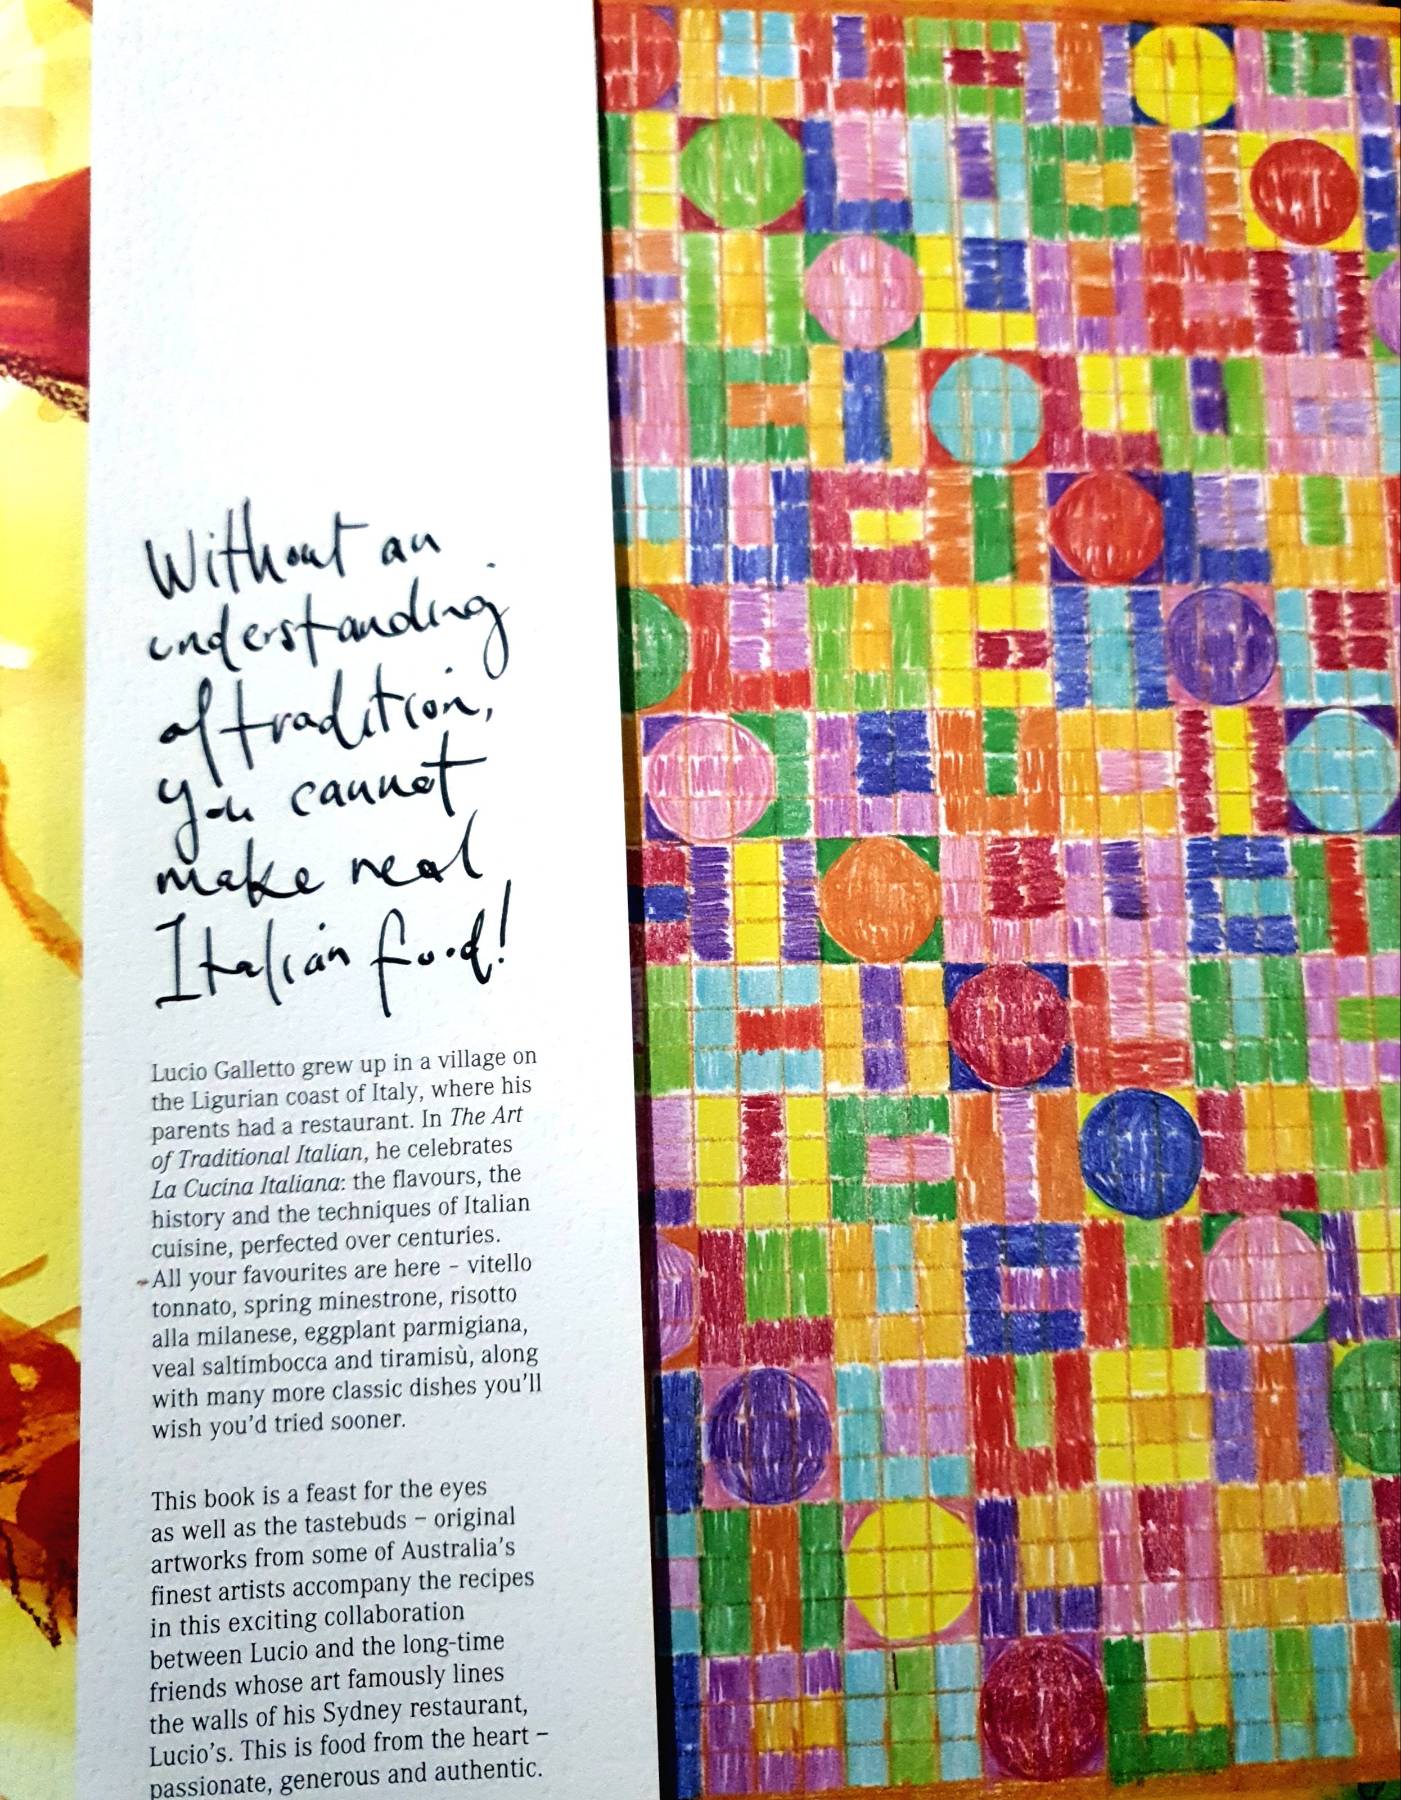 Without an
understanding
of tradition,
you cannot
make real
Italian food!
Lucio Galletto grew up in a village on
the Ligurian coast of Italy, where his
parents had a restaurant. In The Art
of Traditional Italian, he celebrates
La Cucina Italiana: the flavours, the
history and the techniques of Italian
cuisine, perfected over centuries.
All your favourites are here – vitello
tonnato, spring minestrone, risotto
alla milanese, eggplant parmigiana,
veal saltimbocca and tiramisù, along
with many more classic dishes you'll
wish you'd tried sooner.
This book is a feast for the eyes
as well as the tastebuds – original
artworks from some of Australia's
finest artists accompany the recipes
in this exciting collaboration
between Lucio and the long-time
friends whose art famously lines
the walls of his Sydney restaurant,
Lucio's. This is food from the heart –
passionate, generous and authentic.